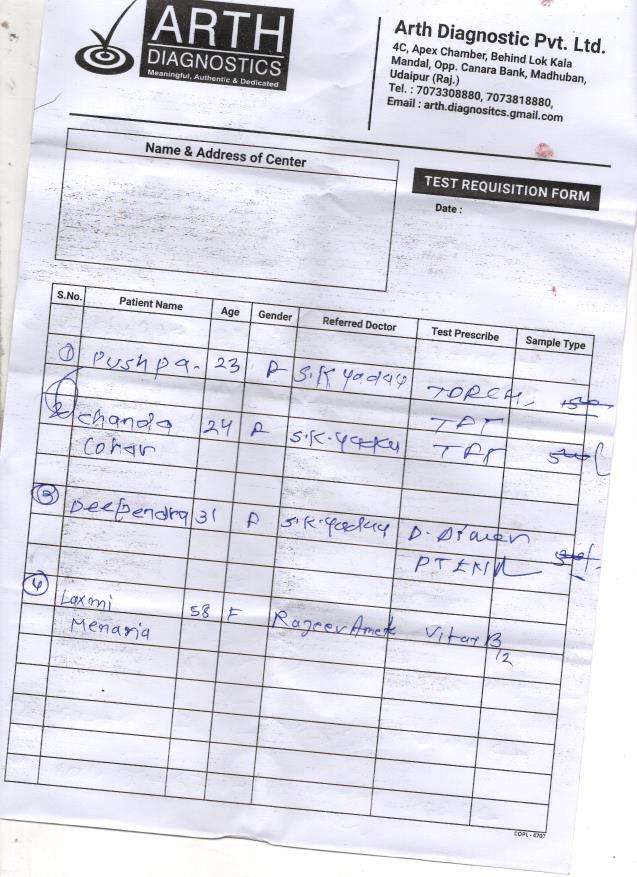 ARTH
DIAGNOSTICS
Meaningful, Authentic & Dedicated
Arth Diagnostic Pvt. Ltd.
4C, Apex Chamber, Behind Lok Kala
Mandal, Opp. Canara Bank, Madhuban,
Udaipur (Raj.)
Tel. : 7073308880, 7073818880,
Email : arth.diagnositcs.gmail.com
Name & Address of Center
TEST REQUISITION FORM
Date :
S.No. Patient Name Age Gender Referred Doctor Test Prescribe Sample Type
1 Pushpa. 23 S.K Yadav TORCH,
2 chanda 24 S.K.
3 Deependra 31 S.K. Yadav D. Dimer
PTINR
4 Laxmi 58 F Rajeev Vitax B
Menaria 12
COPL - 4707